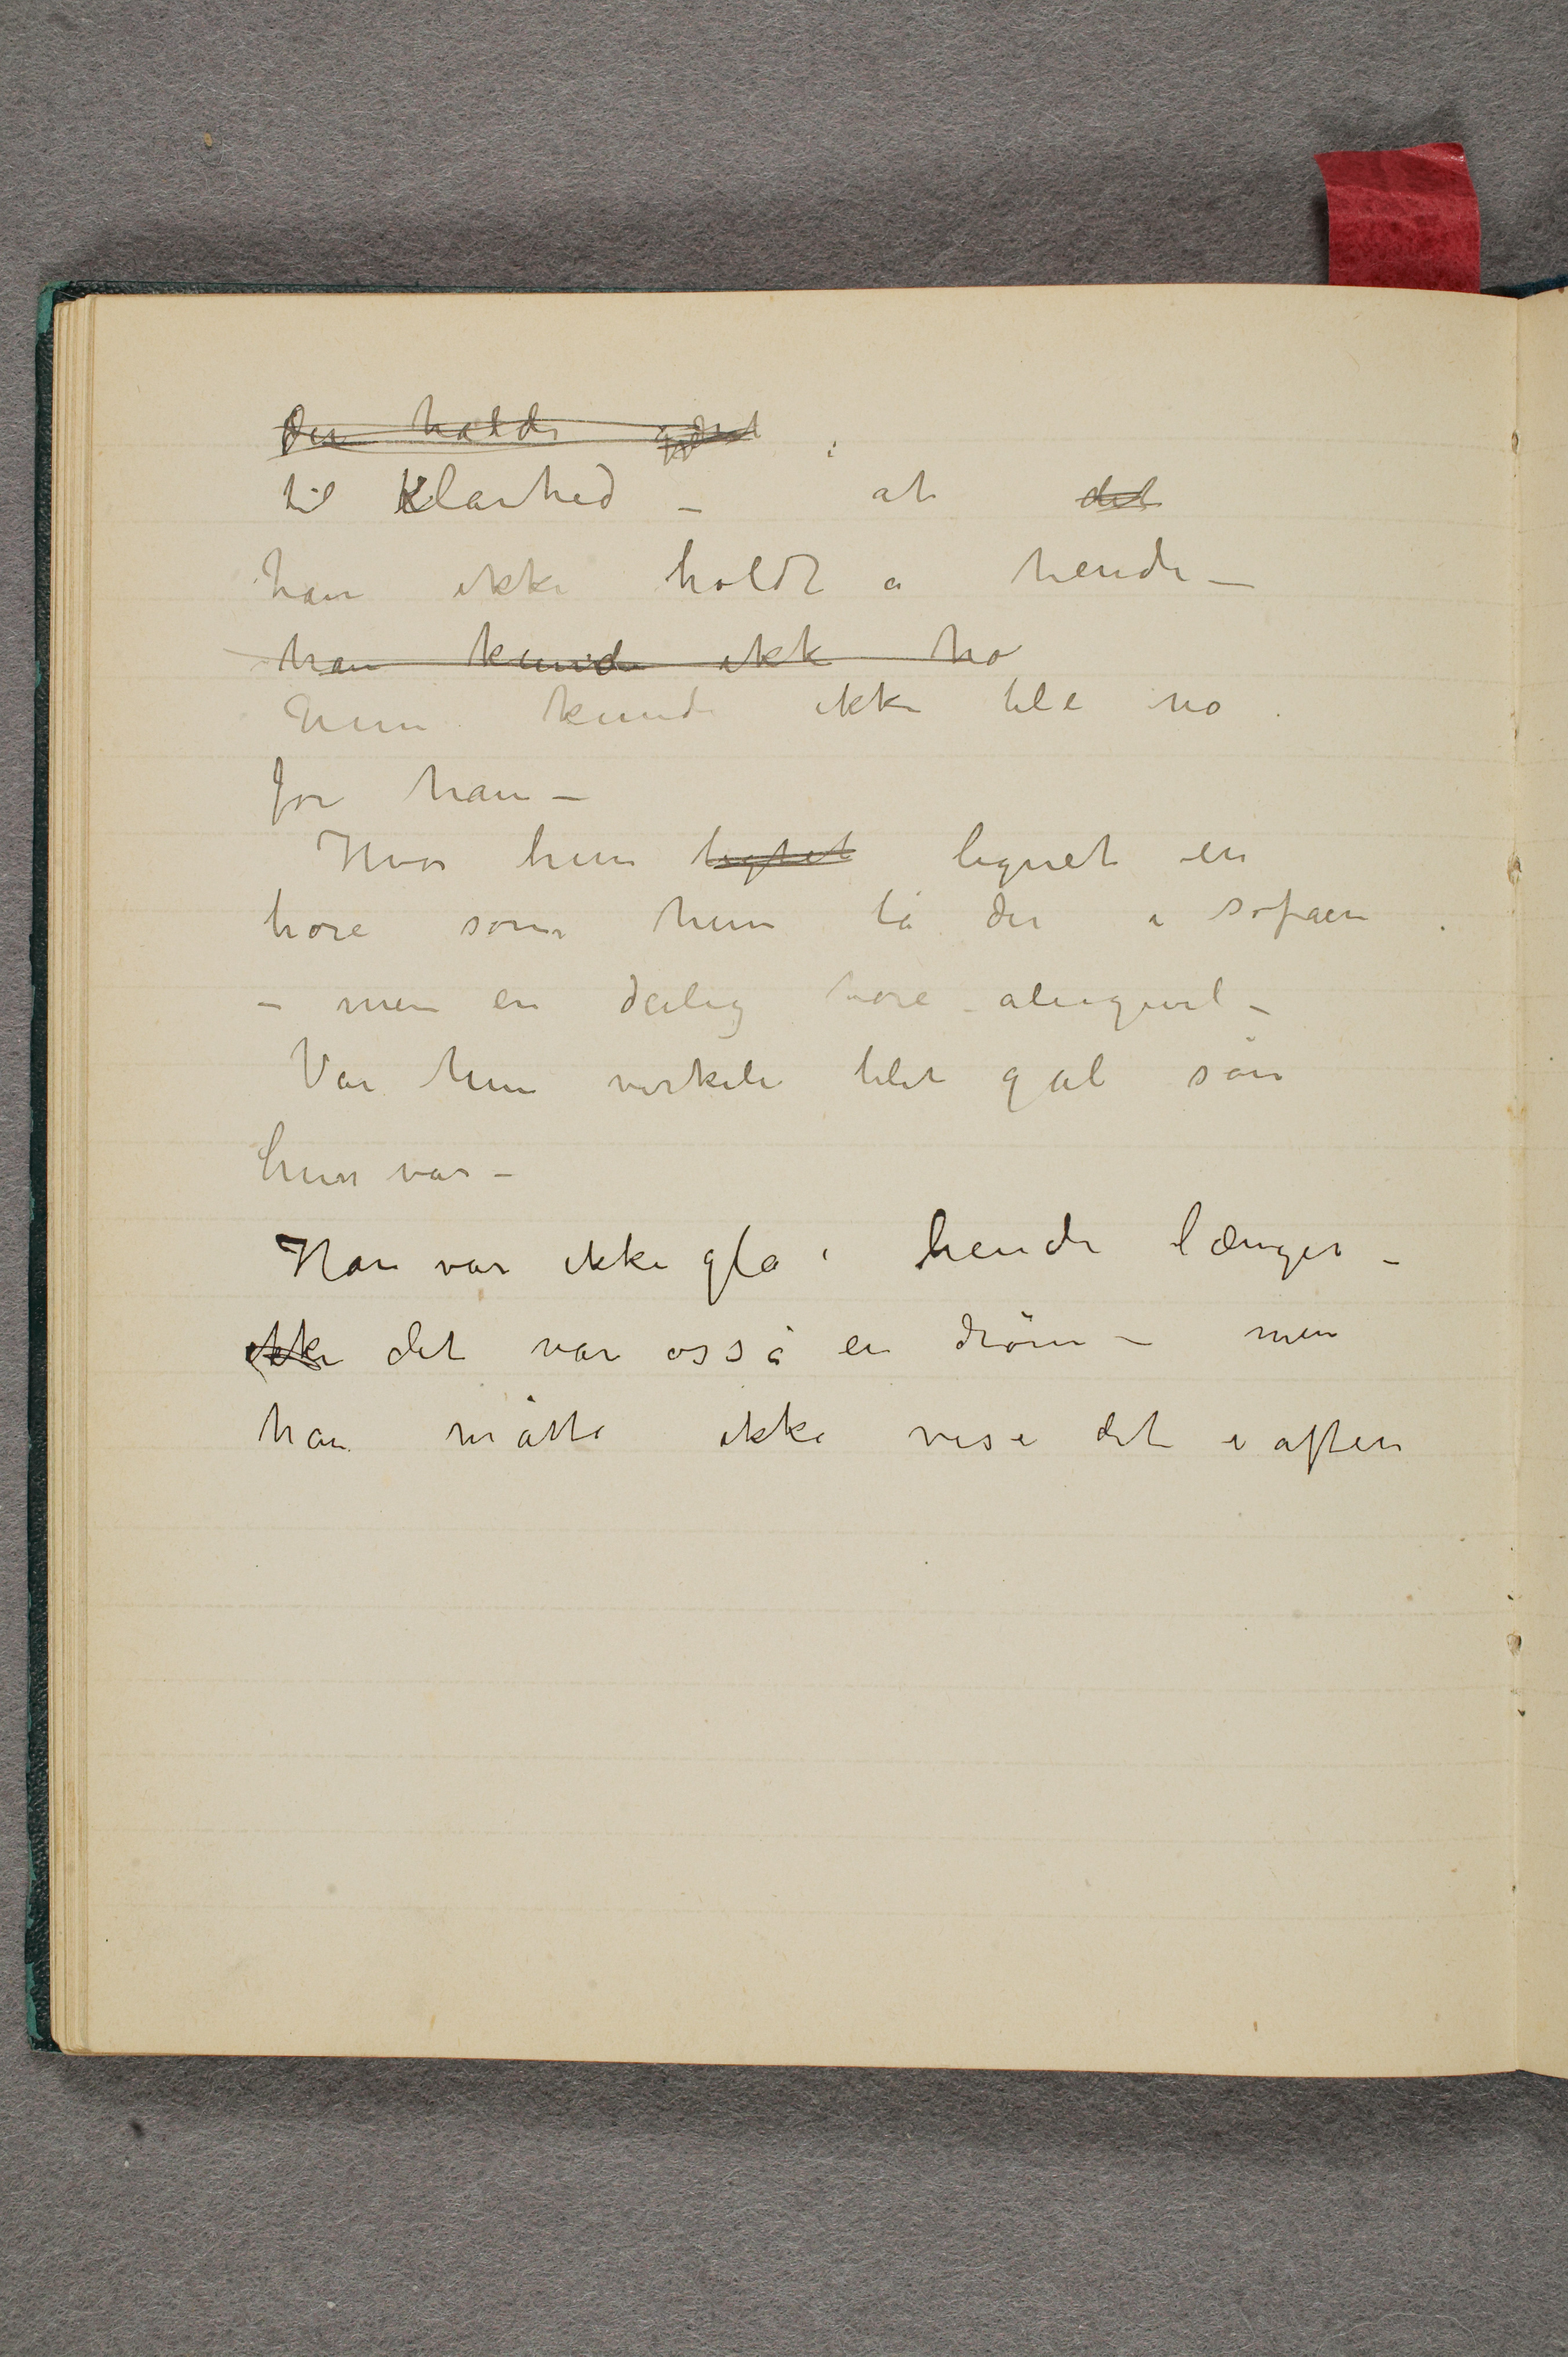 Der holdt
til Klarhed – at det
han ikke holdt a hende –
han kunde ikke ho
Hun kunde ikke ble no
for ham –
Hvor hun lignet lignet en
hore som hun lå der i sofaen
– men en deilig hore alligevel –
Var hun virkeli blit gal sån
hun var –
Han var ikke gla i hende længer –
ikke det var osså en drøm – men
han måtte ikke vise det i aften